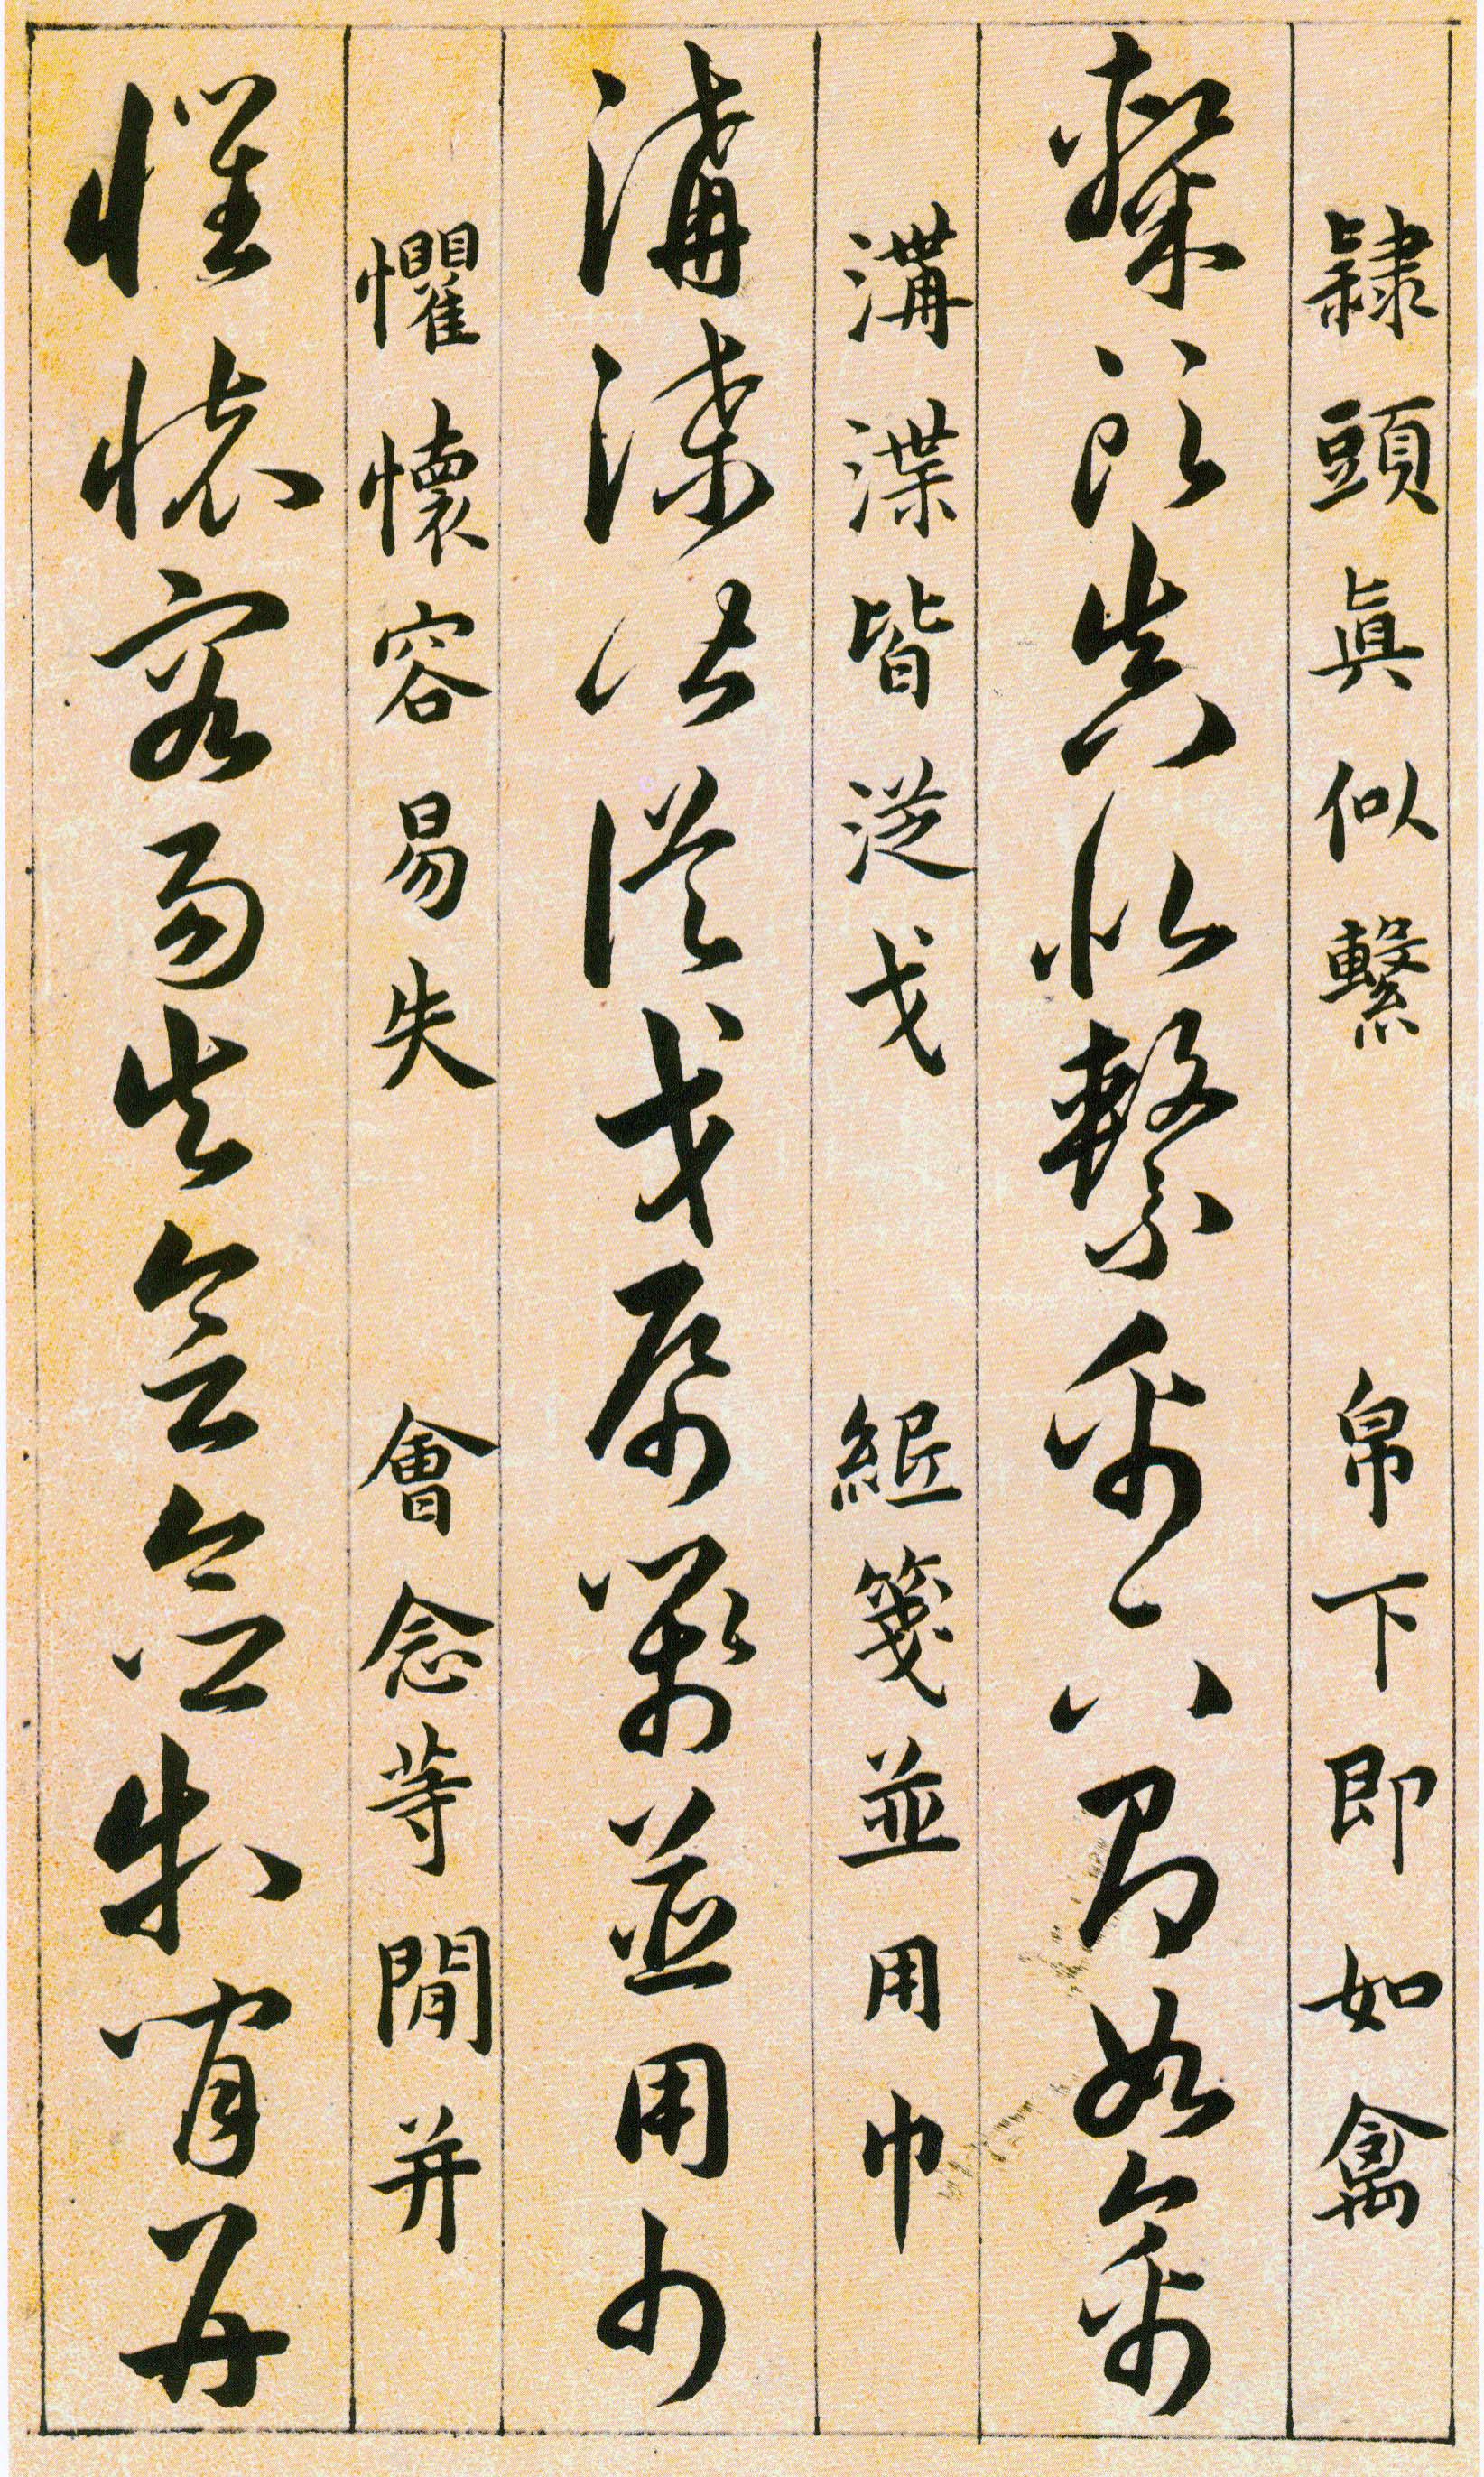 隸頭眞似繫 帛下即如禽
隸頭眞似繫帛下即如禽
溝渫皆從戈 紙箋並用巾
溝渫皆從戈紙箋並用巾
懼懷容易失 會念等閒并
懼懷容易失會念等閒并